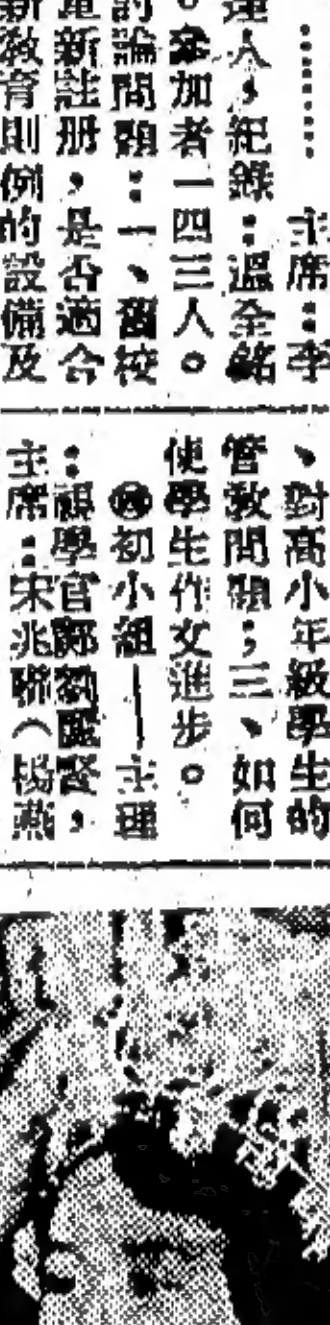 主席：李
運人，紀錄：溫全銘
。參加者一四三人。
討論問題：一、舊校
重新註册，是否適合
新教育則例的設備及
、對高小年級學生的
管教問題；三、如何
使學生作文進步。
初小組—主理
：視學官鄭
主席：宋兆聯（楊燕